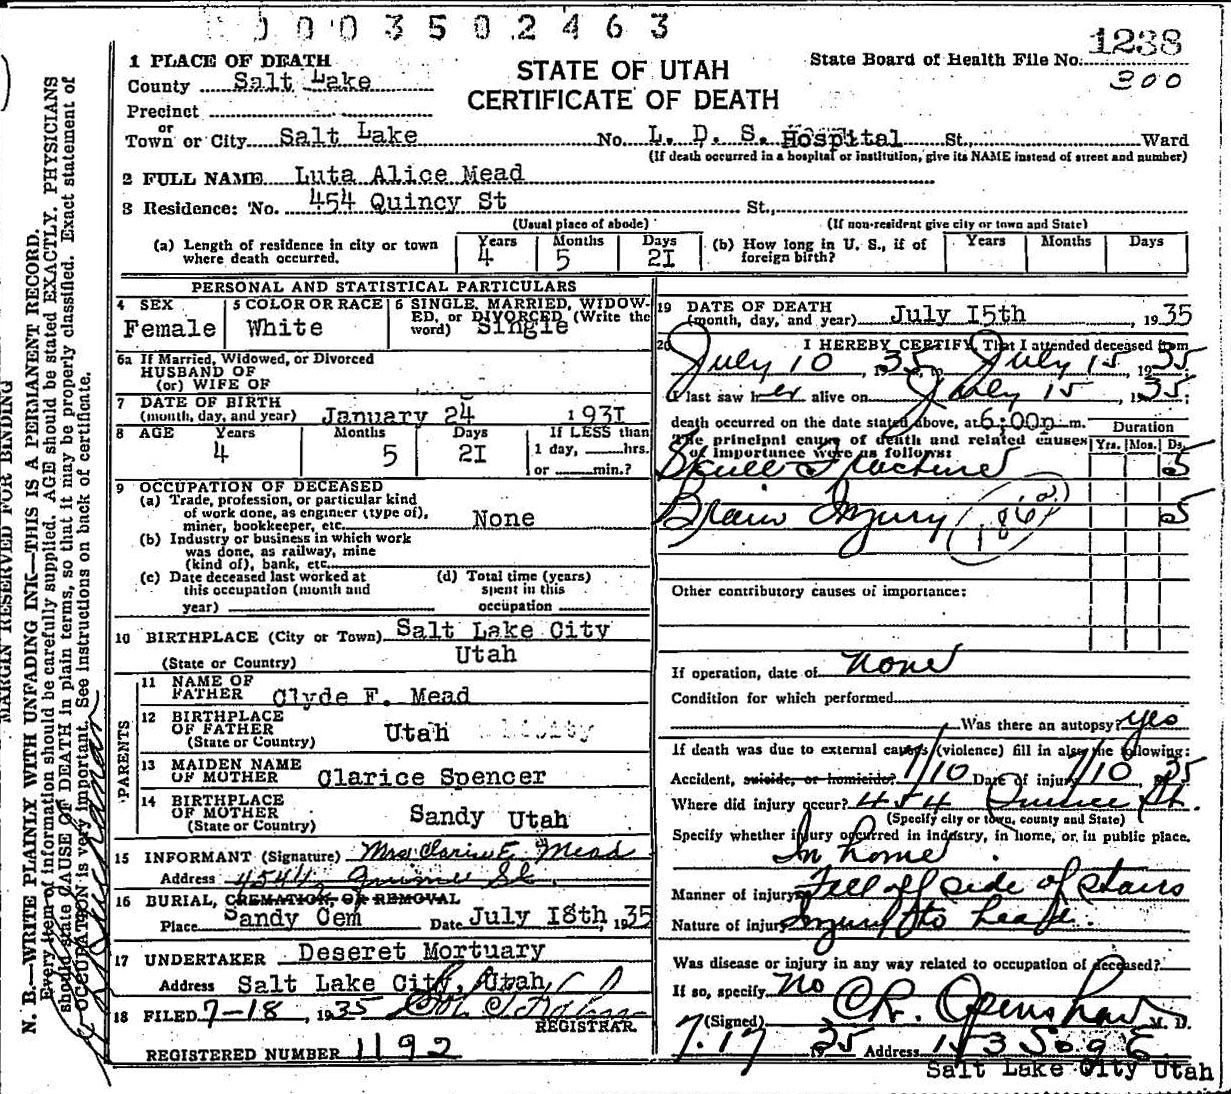 0003502463
1 PLACE OF DEATH
County Salt Lake
STATE OF UTAH
CERTIFICATE OF DEATH
State Board of Health File No. 1238
300
Precinct
or
Town or City Salt Lake No. L. D. S. Hospital St., Ward
(If death occurred in a hospital or institution, give its NAME instead of street and number)
2 FULL NAME Luta Alice Mead
3 Residence: No. 454 Quincy St St.,
(Usual place of abode) (If non-resident give city or town and State)
(a) Length of residence in city or town where death occurred. Years 4 Months 5 Days 21
(b) How long in U. S., if of foreign birth? Years Months Days
PERSONAL AND STATISTICAL PARTICULARS
4 SEX Female
5 COLOR OR RACE White
6 SINGLE, MARRIED, WIDOWED, or DIVORCED (Write the word) Single
6a If Married, Widowed, or Divorced
HUSBAND OF
(or) WIFE OF
7 DATE OF BIRTH
(month, day, and year) January 24 1931
8 AGE Years 4 Months 5 Days 21 If LESS than 1 day, hrs. or min.?
9 OCCUPATION OF DECEASED
(a) Trade, profession, or particular kind
of work done, as engineer (type of),
miner, bookkeeper, etc. None
(b) Industry or business in which work
was done, as railway, mine
(kind of), bank, etc.
(c) Date deceased last worked at
this occupation (month and
year)
(d) Total time (years)
spent in this
occupation
10 BIRTHPLACE (City or Town) Salt Lake City
(State or Country) Utah
PARENTS
11 NAME OF
FATHER Clyde F. Mead
12 BIRTHPLACE
OF FATHER
(State or Country) Utah
13 MAIDEN NAME
OF MOTHER Clarice Spencer
14 BIRTHPLACE
OF MOTHER
(State or Country) Sandy Utah
15 INFORMANT (Signature) Mrs Clarice E. Mead
Address 454 St.
16 BURIAL, CREMATION, OR REMOVAL
Place Sandy Cem Date July 18th, 1935
17 UNDERTAKER Deseret Mortuary
Address Salt Lake City, Utah
18 FILED 7-18, 1935
REGISTRAR
REGISTERED NUMBER 1192
19 DATE OF DEATH
(month, day, and year) July 15th, 1935
20 I HEREBY CERTIFY, That I attended deceased from
July 10, 1935, to July 15, 1935
I last saw her alive on July 15, 1935;
death occurred on the date stated above, at 6:00p m.
The principal cause of death and related causes
of importance were as follows:
Duration
Yrs. Mos. Ds.
Skull Fracture 5
Brain Injury 5
Other contributory causes of importance:
If operation, date of none
Condition for which performed
Was there an autopsy? yes
If death was due to external causes (violence) fill in also the following:
Accident, suicide, or homicide? 7/10 Date of injury 7/10 1935
Where did injury occur? 454 St.
(Specify city or town, county and State)
Specify whether injury occurred in industry, in home, or in public place.
In home.
Manner of injury Fell off side of stairs
Nature of injury Injury to head.
Was disease or injury in any way related to occupation of deceased?
If so, specify No
(Signed) C R. Openshaw M. D.
7.17 1935 Address 153 So 9 E.
Salt Lake City Utah
MARGIN RESERVED FOR BINDING
N. B.—WRITE PLAINLY WITH UNFADING INK—THIS IS A PERMANENT RECORD.
Every item of information should be carefully supplied. AGE should be stated EXACTLY. PHYSICIANS
should state CAUSE OF DEATH in plain terms, so that it may be properly classified. Exact statement of
OCCUPATION is very important. See instructions on back of certificate.